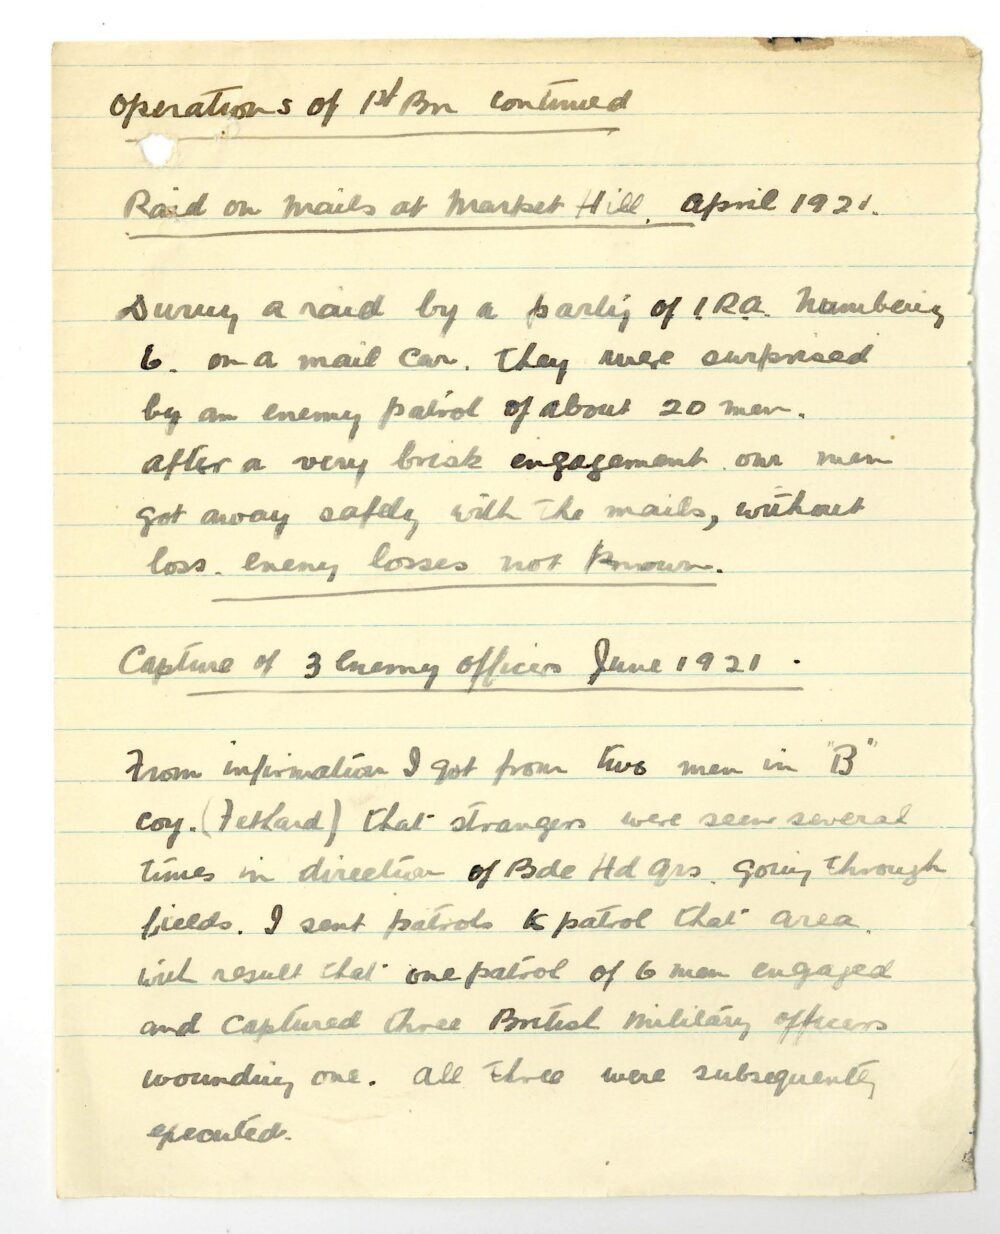 Operations of 1st Bn continued
Raid on Mails at Market Hill. April 1921.
During a raid by a party of I.R.A. Numbering
6. on a mail car. they were surprised
by an enemy patrol of about 20 men.
after a very brisk engagement our men
got away safely with the mails, without
loss. Enemy losses not known.
Capture of 3 Enemy officers June 1921.
From information I got from two men in "B"
coy. (Fethard) that strangers were seen several
times in direction of Bde Hd Qrs. going through
fields. I sent patrols to patrol that area.
with result that one patrol of 6 men engaged
and captured three British Military officers
wounding one. all three were subsequently
executed.